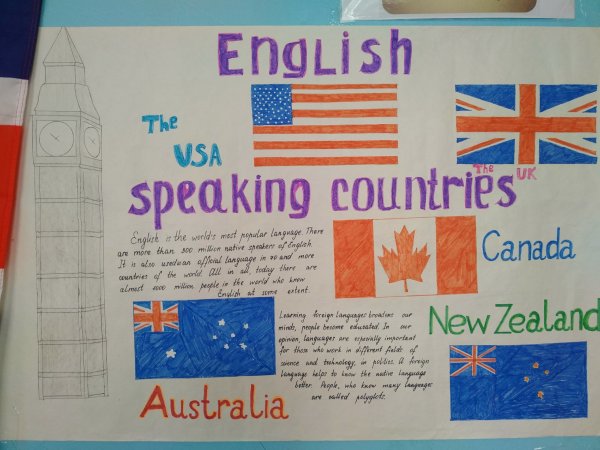 English
The
USA
The UK
speaking countries
English is the world's most popular language. There
are more than 300 million native speakers of English.
It is also used an official language in 70 and more
countries of the world. All in all, today there are
almost 1000 million people in the world who know
English at some extent.
Canada
Learning foreign languages broadens our
minds, people become educated. In our
opinion, languages are especially important
for those who work in different fields of
science and technology, in politics. A foreign
language helps to know the native language
better. People, who know many languages
are called polyglots.
New Zealand
Australia